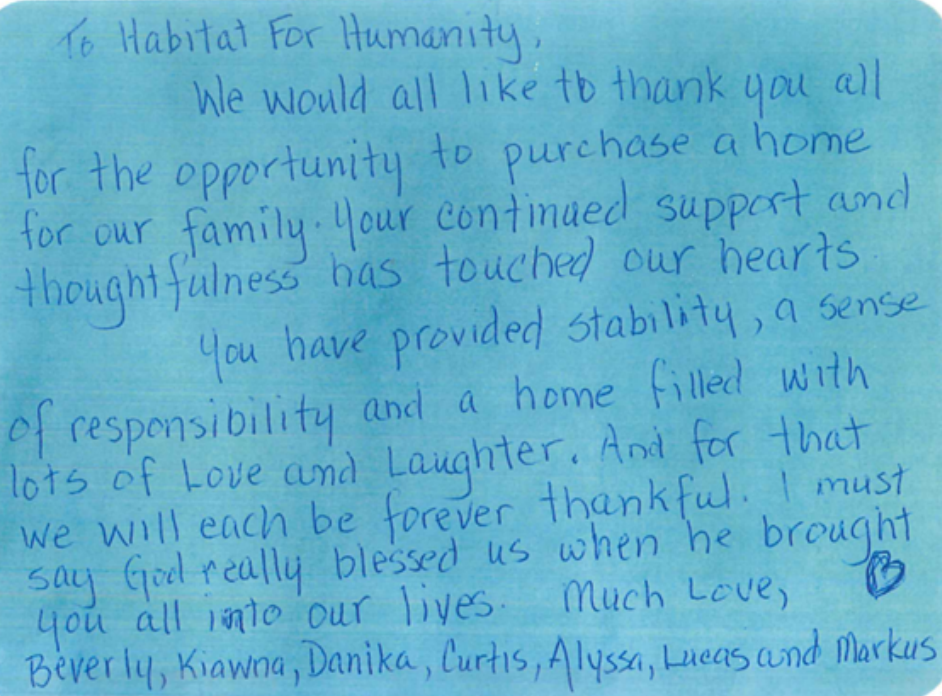 To Habitat For Humanity,
We would all like to thank you all
for the opportunity to purchase a home
for our family. Your continued support and
thoughtfulness has touched our hearts.
You have provided stability, a sense
of responsibility and a home filled with
lots of Love and Laughter. And for that
we will each be forever thankful. I must
say God really blessed us when he brought
you all into our lives. Much Love,
Beverly, Kiawna, Danika, Curtis, Alyssa, Lucas and Markus